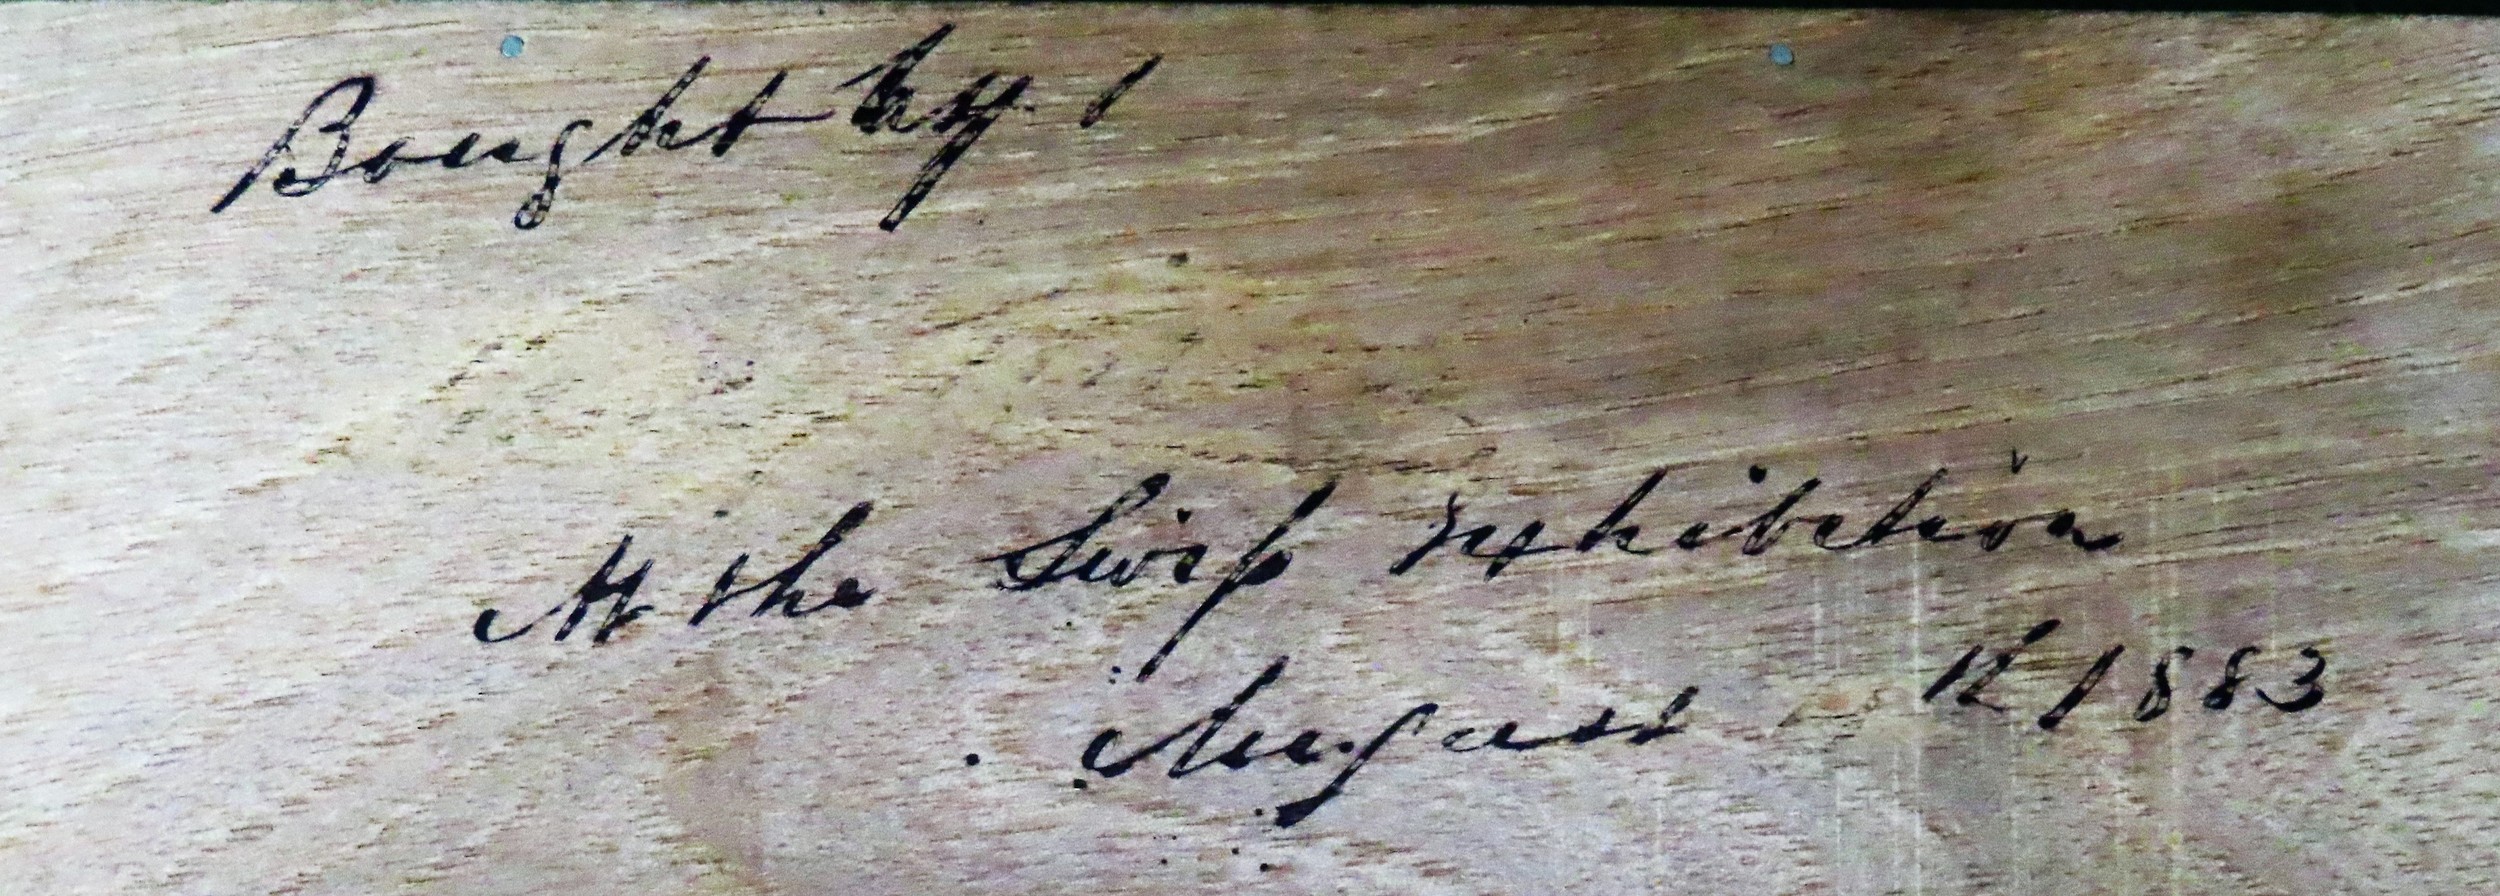 Bought by
At the Swiss Exhibition
August 12 / 1883